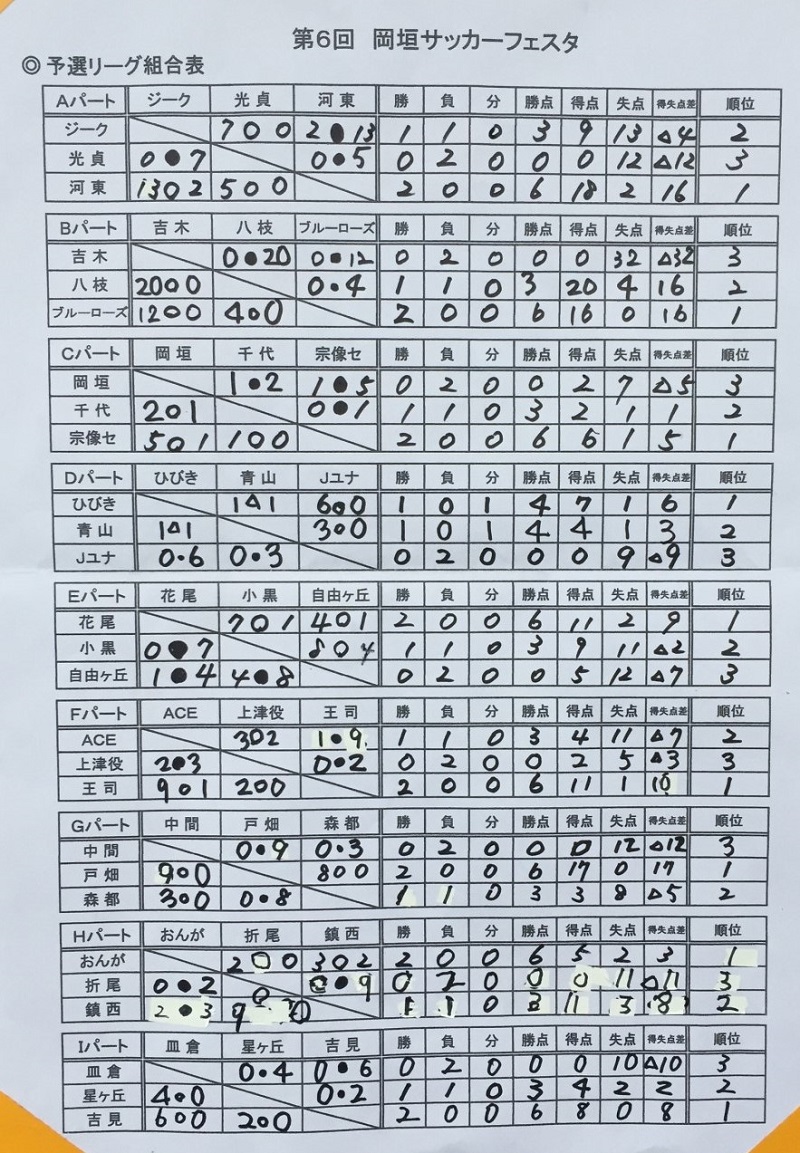 第6回 岡垣サッカーフェスタ
◎ 予選リーグ組合表
Aパート ジーク 光貞 河東 勝 負 分 勝点 得点 失点 得失点差 順位
ジーク 7○0 2●13 1 1 0 3 9 13 △4 2
光貞 0●7 0●5 0 2 0 0 0 12 △12 3
河東 13○2 5○0 2 0 0 6 18 2 16 1
Bパート 吉木 八枝 ブルーローズ 勝 負 分 勝点 得点 失点 得失点差 順位
吉木 0●20 0●12 0 2 0 0 0 32 △32 3
八枝 20○0 0●4 1 1 0 3 20 4 16 2
ブルーローズ 12○0 4○0 2 0 0 6 16 0 16 1
Cパート 岡垣 千代 宗像セ 勝 負 分 勝点 得点 失点 得失点差 順位
岡垣 1●2 1●5 0 2 0 0 2 7 △5 3
千代 2○1 0●1 1 1 0 3 2 1 1 2
宗像セ 5○1 1○0 2 0 0 6 6 1 5 1
Dパート ひびき 青山 Jユナ 勝 負 分 勝点 得点 失点 得失点差 順位
ひびき 1△1 6○0 1 0 1 4 7 1 6 1
青山 1△1 3○0 1 0 1 4 4 1 3 2
Jユナ 0●6 0●3 0 2 0 0 0 9 △9 3
Eパート 花尾 小黒 自由ヶ丘 勝 負 分 勝点 得点 失点 得失点差 順位
花尾 7○1 4○1 2 0 0 6 11 2 9 1
小黒 0●7 8○4 1 1 0 3 9 11 △2 2
自由ヶ丘 1●4 4●8 0 2 0 0 5 12 △7 3
Fパート ACE 上津役 王司 勝 負 分 勝点 得点 失点 得失点差 順位
ACE 3○2 1●9 1 1 0 3 4 11 △7 2
上津役 2●3 0●2 0 2 0 0 2 5 △3 3
王司 9○1 2○0 2 0 0 6 11 1 10 1
Gパート 中間 戸畑 森都 勝 負 分 勝点 得点 失点 得失点差 順位
中間 0●9 0●3 0 2 0 0 0 12 △12 3
戸畑 9○0 8○0 2 0 0 6 17 0 17 1
森都 3○0 0●8 1 1 0 3 3 8 △5 2
Hパート おんが 折尾 鎮西 勝 負 分 勝点 得点 失点 得失点差 順位
おんが 2○0 3○2 2 0 0 6 5 2 3 1
折尾 0●2 0●9 0 2 0 0 0 11 △11 3
鎮西 2●3 9○0 1 1 0 3 11 3 8 2
Iパート 皿倉 星ヶ丘 吉見 勝 負 分 勝点 得点 失点 得失点差 順位
皿倉 0●4 0●6 0 2 0 0 0 10 △10 3
星ヶ丘 4○0 0●2 1 1 0 3 4 2 2 2
吉見 6○0 2○0 2 0 0 6 8 0 8 1